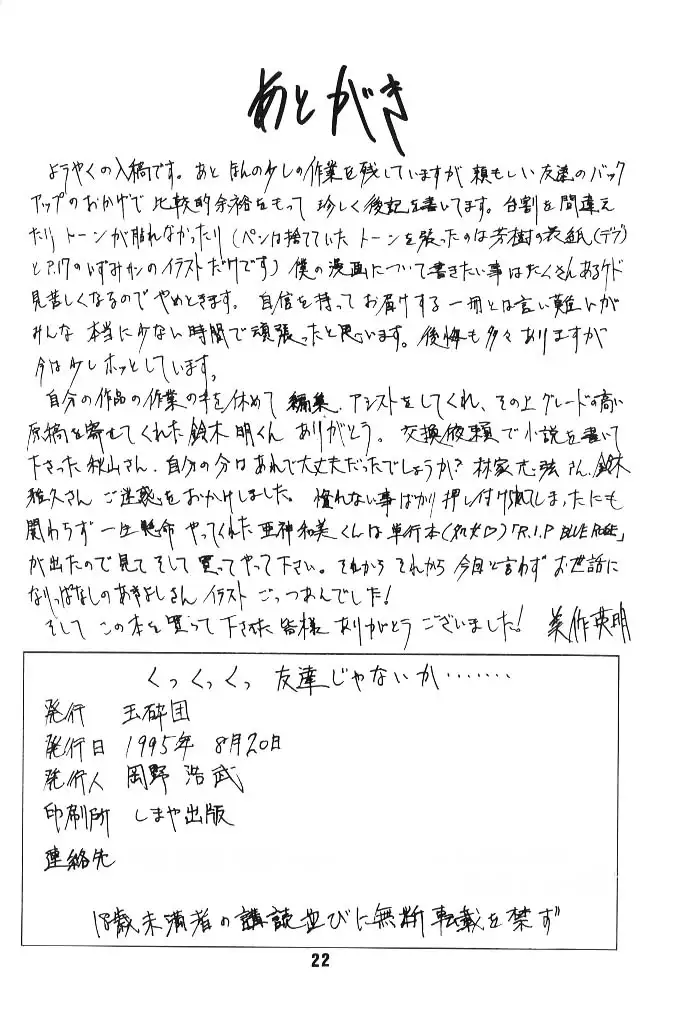 あとがき
ようやくの入稿です。あと ほんの少しの作業を残していますが 頼もしい友達のバック
アップのおかげで 比較的余裕をもって 珍しく後記を書いてます。台割を間違え
たり トーンが貼れなかったり (ペンは捨てていた トーンを張ったのは芳樹の表紙(デブ)
とP.17のいずみかのイラストだけです) 僕の漫画について書きたい事はたくさんあるケド
見苦しくなるので やめときます。 自信を持って お届けする 一冊とは言い難いが
みんな 本当に少ない時間で頑張ったと思います。後悔も多々ありますが
今は少しホッとしています。
自分の作品の作業の手を休めて 編集、アシストをしてくれ、その上グレードの高い
原稿を寄せてくれた 鈴木 明くん ありがとう。 交換依頼で小説を書いて
下さった 秋山さん、自分の分はあれで大丈夫だったでしょうか? 林家志弦さん、鈴木
雅久さん ご迷惑をおかけしました。 慣れない事ばかり押し付けられてしまったにも
関わらず 一生懸命 やってくれた 亜神和美くんは 単行本(処女♡)「R.I.P BLUE ROSE」
が出たので見て そして 買ってやって下さい。それから それから 今回と言わず お世話に
なりっぱなしのあきよしさん イラスト ごっつあんでした!
そして この本を買って下さった 皆様 ありがとう ございました! 美作英明
くっくっくっ 友達じゃないか・・・・・・・
発行 玉砕団
発行日 1995年 8月20日
発行人 岡野 浩武
印刷所 しまや出版
連絡先
18歳未満者の購読並びに無断転載を禁ず
22